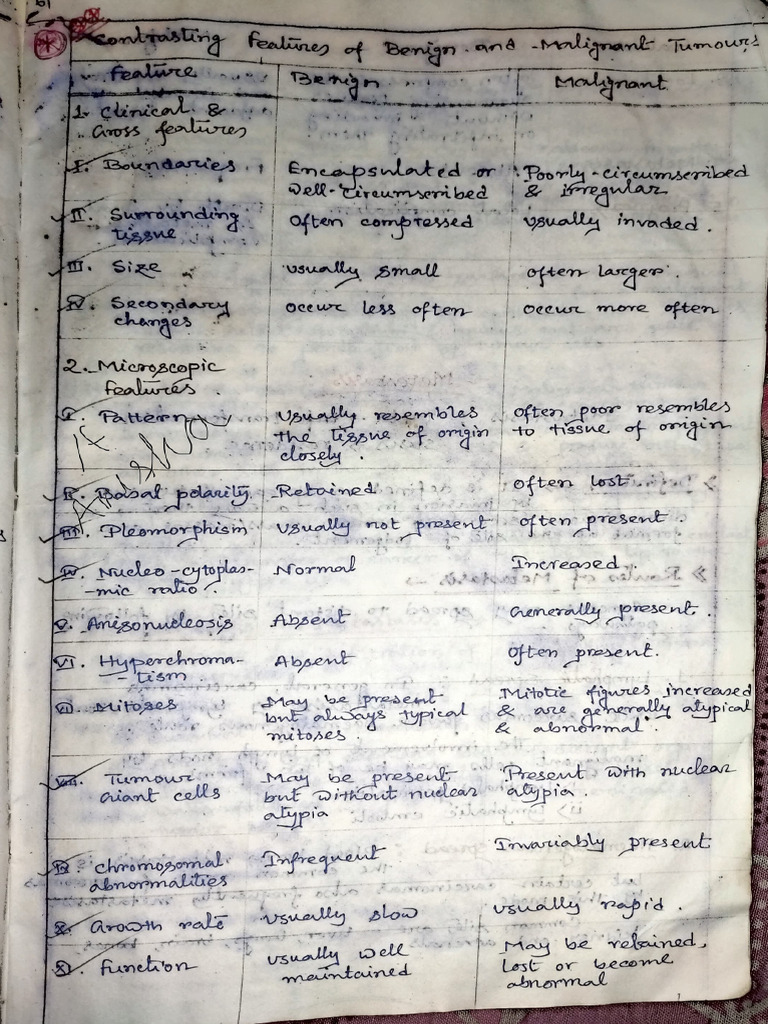 Contrasting Features of Benign and Malignant Tumours
Feature Benign Malignant
1. Clinical &
Gross features
I. Boundaries Encapsulated or Poorly-circumscribed
well-circumscribed & irregular
II. Surrounding Often compressed usually invaded.
tissue
III. Size usually small often larger.
IV. Secondary occur less often occur more often
changes
2. Microscopic
features.
I. Pattern Usually resembles often poor resembles
the tissue of origin to tissue of origin
closely.
II. Basal polarity Retained often lost.
III. Pleomorphism usually not present often present.
IV. Nucleo-cytoplas- Normal Increased.
-mic ratio.
V. Anisonucleosis Absent Generally present.
VI. Hyperchroma- Absent Often present.
-tism
VII. Mitoses May be present Mitotic figures increased
but always typical & are generally atypical
mitoses. & abnormal.
VIII. Tumour May be present Present with nuclear
Giant cells but without nuclear atypia.
atypia
IX. Chromosomal Infrequent Invariably present
abnormalities
X. Growth rate usually slow usually rapid.
XI. Function usually well May be retained,
maintained lost or become
abnormal